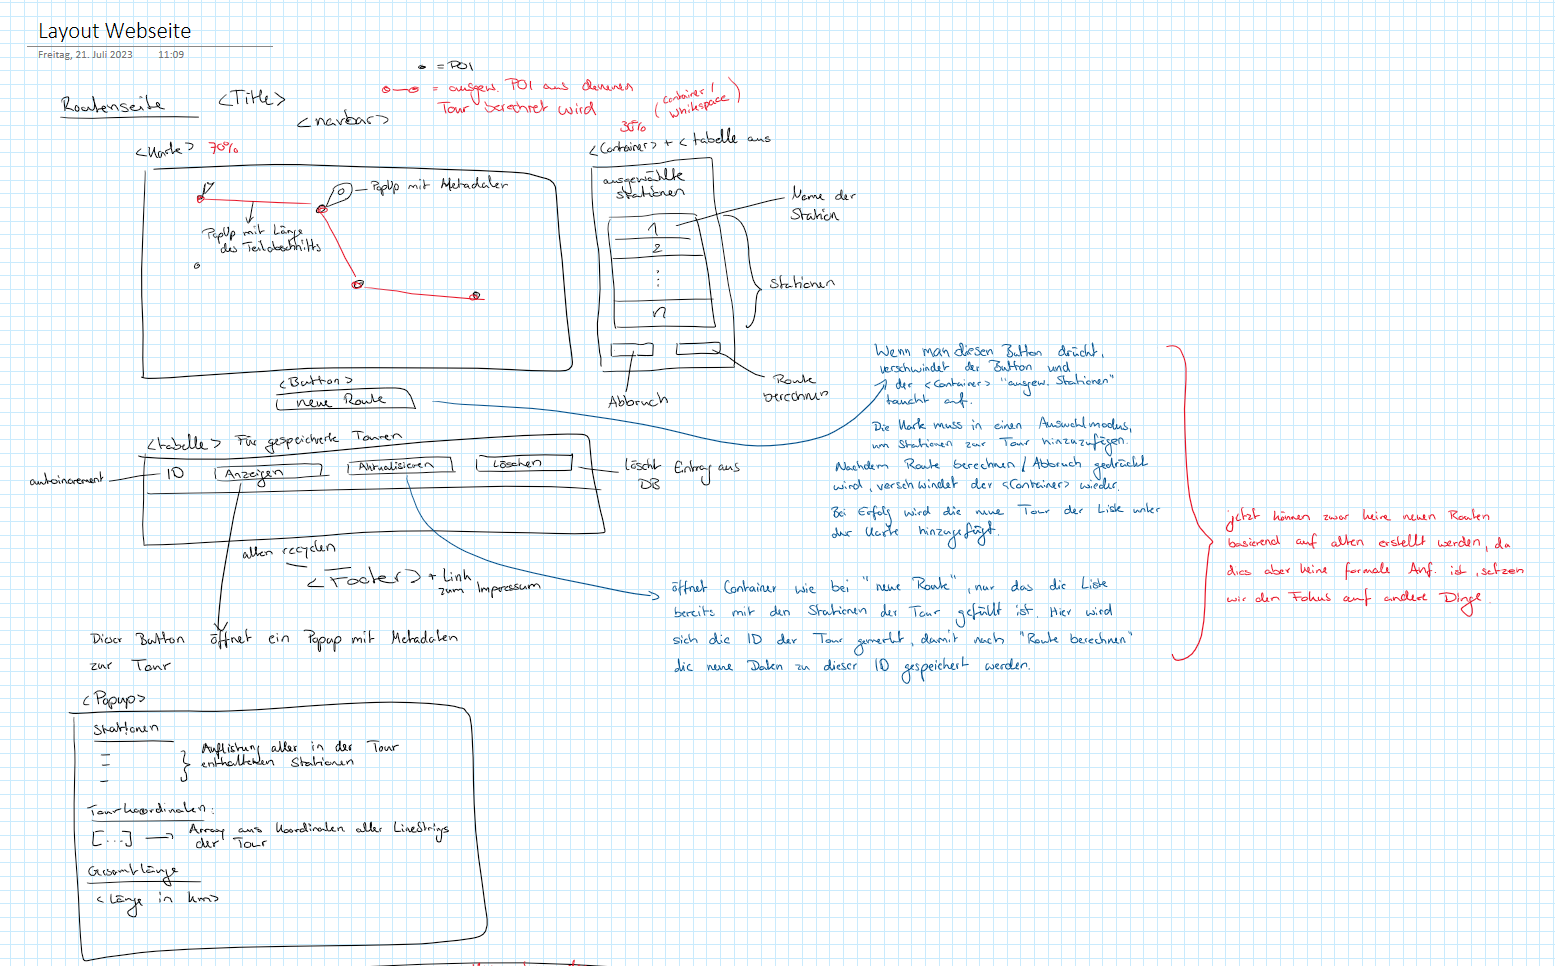 Layout Webseite
Freitag, 21. Juli 2023 11:09
• = POI
= ausgew. POI aus denenen
Tour berechnet wird
Routenseite
<Title>
<navbar>
(Container /
Whitespace)
30%
<Container> + <tabelle aus
<Karte> 70%
PopUp mit Metadaten
PopUp mit Länge
des Teilabschnitts
ausgewählte
Stationen
1
2
n
Name der
Station
Stationen
Abbruch
Route
berechnen
<Button>
neue Route
Wenn man diesen Button drückt,
verschwindet der Button und
der <Container> "ausgew. Stationen"
taucht auf.
Die Karte muss in einen Auswahlmodus,
um Stationen zur Tour hinzuzufügen.
Nachdem Route berechnen / Abbruch gedrückt
wird, verschwindet der <Container> wieder.
Bei Erfolg wird die neue Tour der Liste unter
der Karte hinzugefügt.
<tabelle> Für gespeicherte Touren
autoincrement
ID
Anzeigen
Aktualisieren
Löschen
Löscht Eintrag aus
DB
alten recyclen
<Footer> + Link
zum Impressum
öffnet Container wie bei "neue Route", nur das die Liste
bereits mit den Stationen der Tour gefüllt ist. Hier wird
sich die ID der Tour gemerkt, damit nach "Route berechnen"
die neue Daten zu dieser ID gespeichert werden.
jetzt können zwar keine neuen Routen
basierend auf alten erstellt werden, da
dies aber keine formale Anf. ist, setzen
wir den Fokus auf andere Dinge.
Dieser Button öffnet ein Popup mit Metadaten
zur Tour
<Popup>
Stationen
Auflistung aller in der Tour
enthaltenen Stationen
Tourkoordinaten:
[...]
Array aus Koordinaten aller LineStrings
der Tour
Gesamtlänge
<Länge in km>